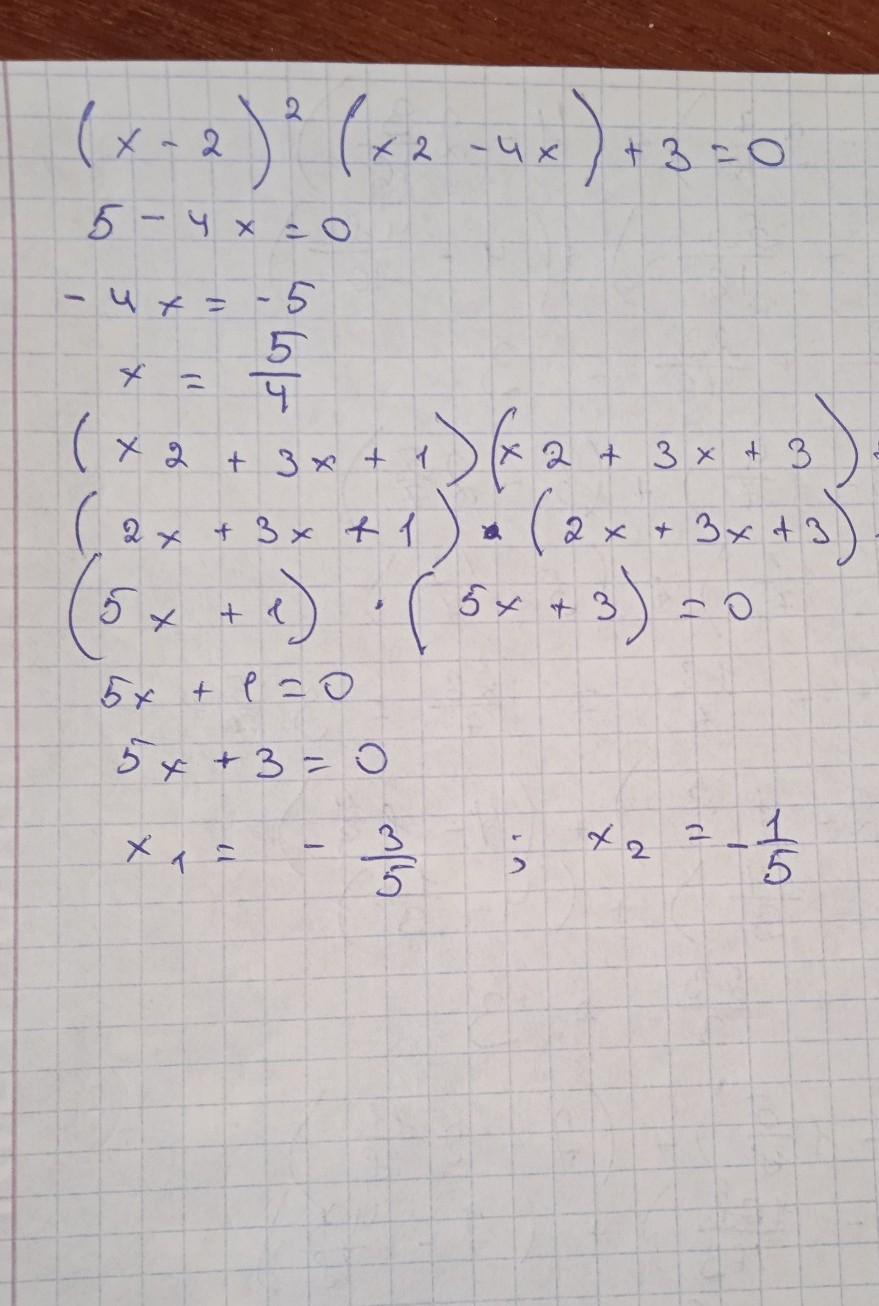 (x - 2)² (x2 - 4x) + 3 = 0
5 - 4x = 0
- 4x = -5
x = 5/4
(x2 + 3x + 1)(x2 + 3x + 3)
(2x + 3x + 1) · (2x + 3x + 3)
(5x + 1) · (5x + 3) = 0
5x + 1 = 0
5x + 3 = 0
x₁ = - 3/5 ; x₂ = - 1/5